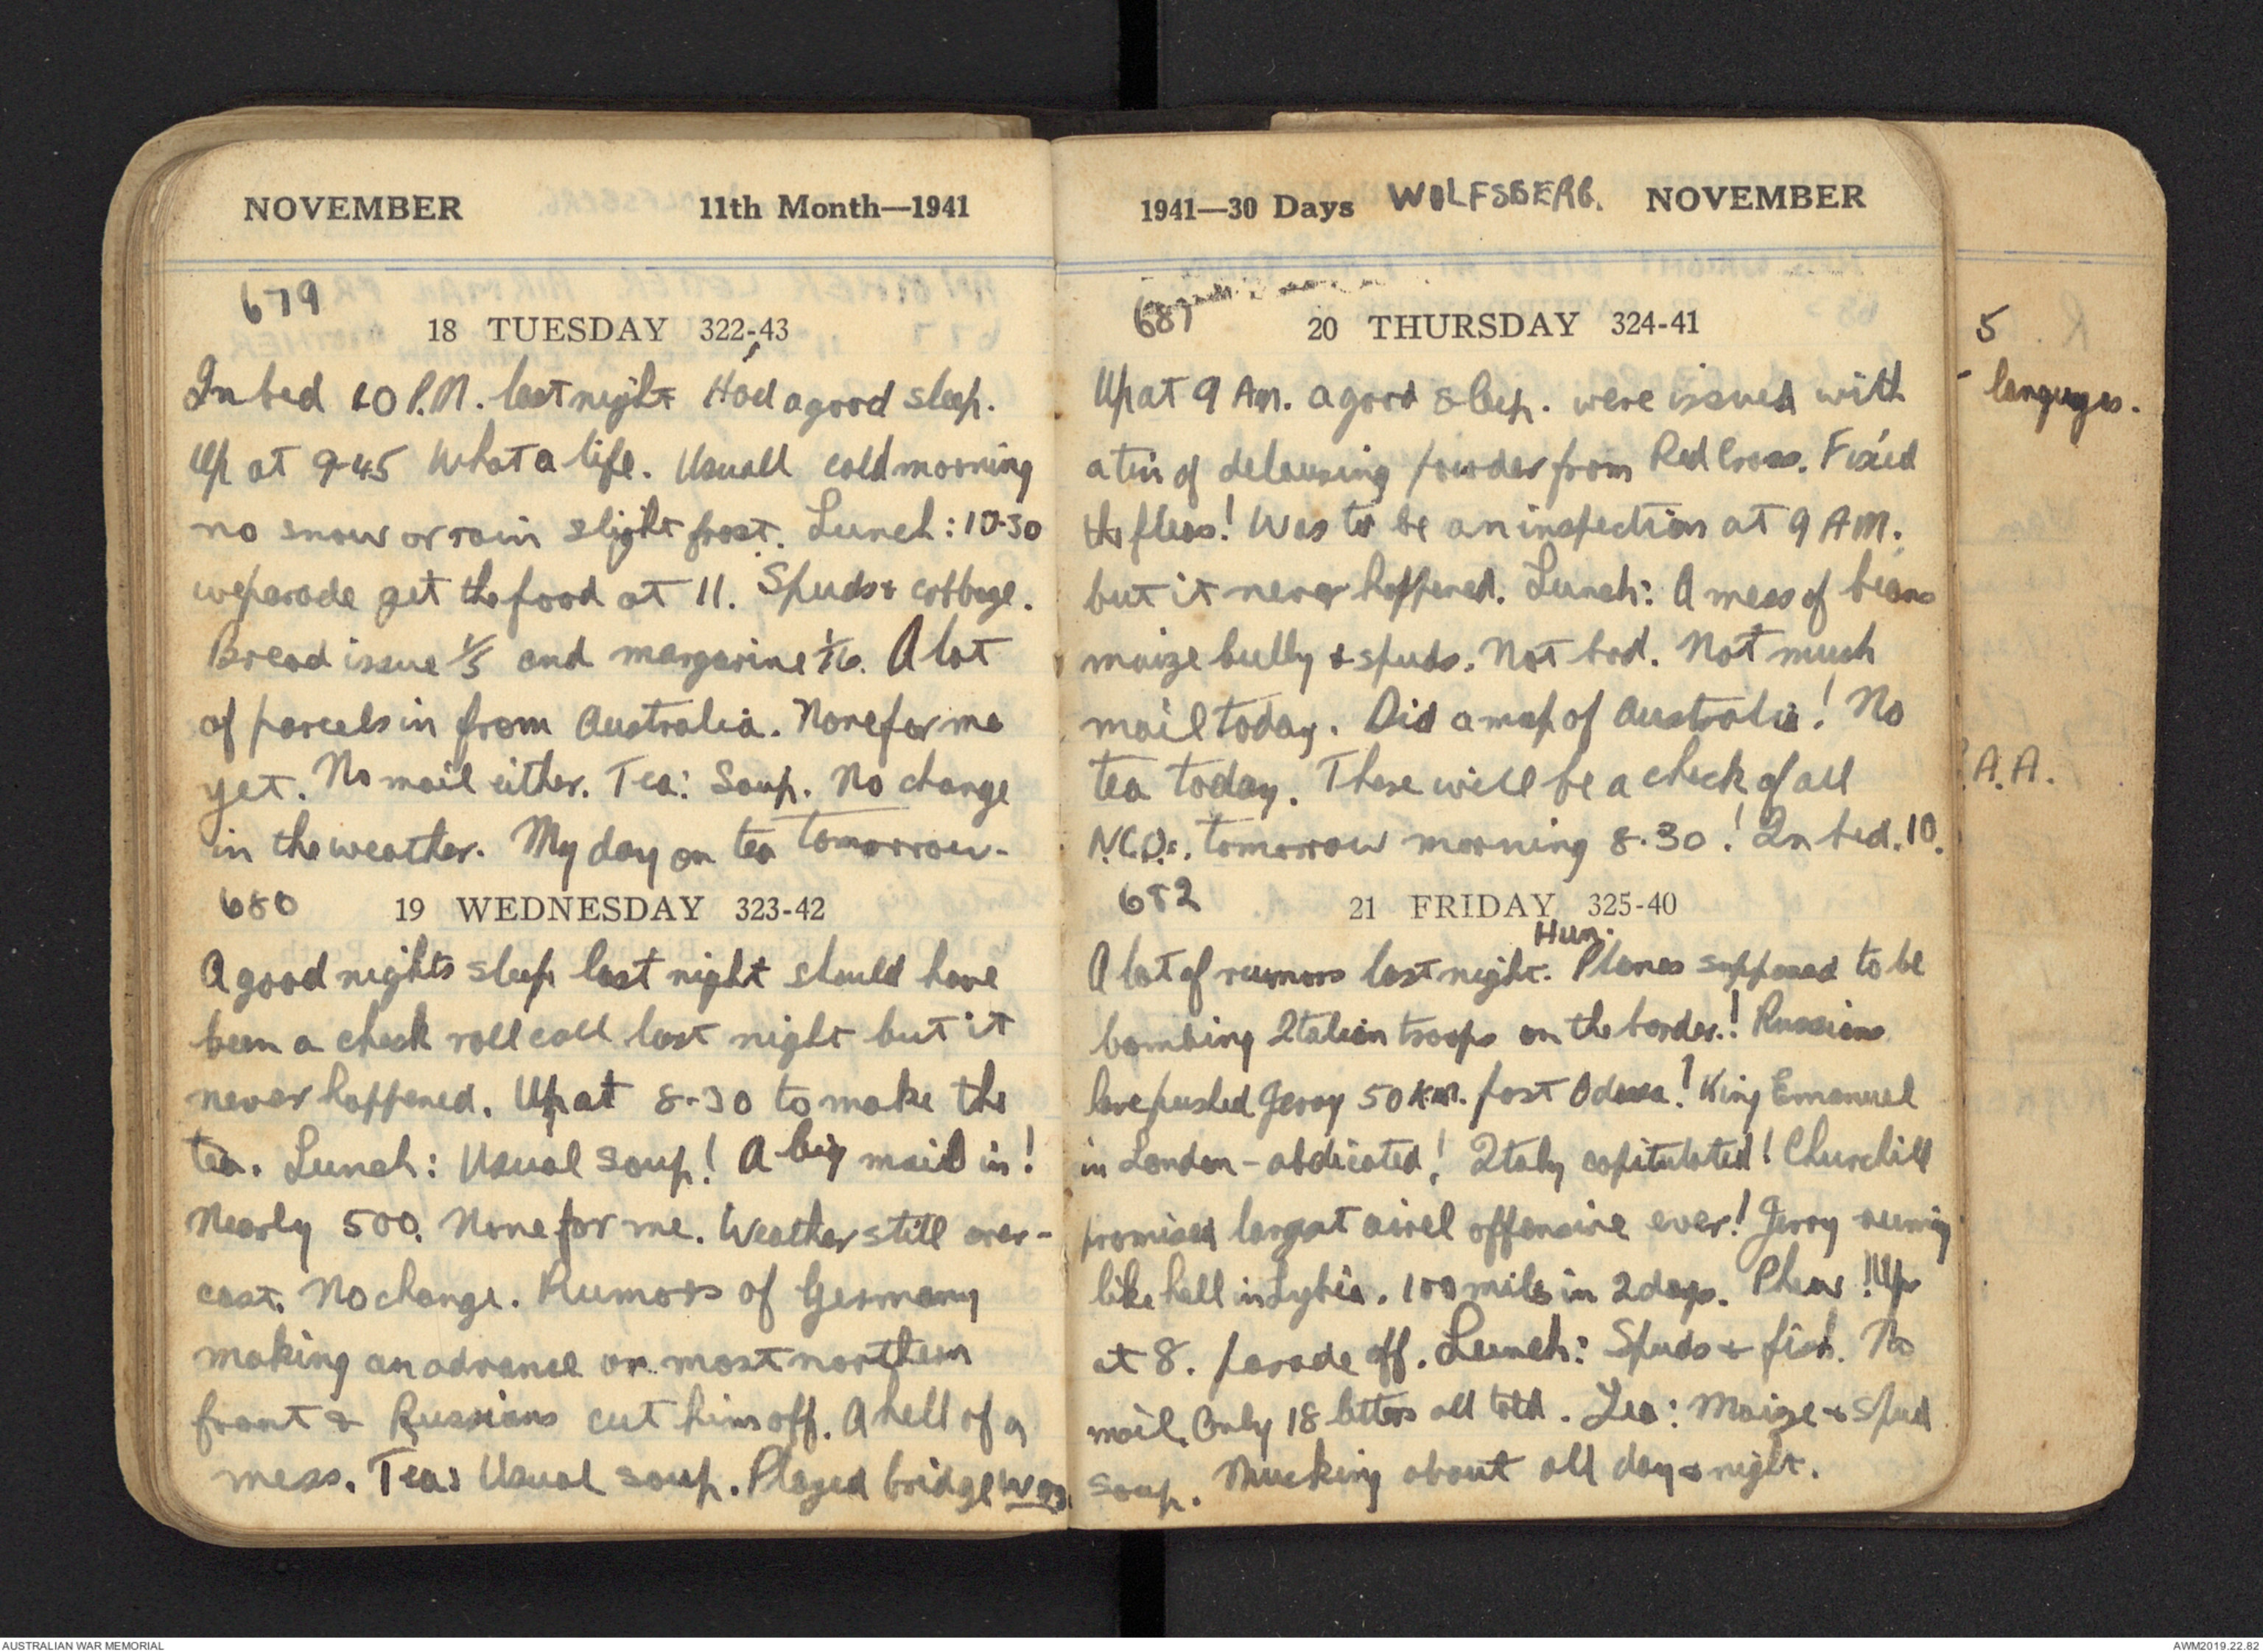 NOVEMBER 11th Month—1941
679
18 TUESDAY 322-43
In bed 10 P.M. last night Had a good sleep.
Up at 9-45 What a life. Usuall cold morning
no snow or rain slight frost. Lunch: 10-30
we parade get the food at 11. Spuds & cabbage.
Bread issue 1/5 and margarine 1/16. A lot
of parcels in from Australia. None for me
yet. No mail either. Tea: Soup. No change
in the weather. My day on tea tomorrow.
680
19 WEDNESDAY 323-42
A good nights sleep last night should have
been a check roll call last night but it
never happened. Up at 8-30 to make the
tea. Lunch: Usual soup! A big mail in!
Nearly 500. None for me. Weather still over-
cast. No change. Rumors of Germany
making an advance on most northern
front & Russians cut him off. A hell of a
mess. Tea: Usual soup. Played bridge
1941—30 Days WOLFSBERG. NOVEMBER
681
20 THURSDAY 324-41
Up at 9 Am. a good sleep. were issued with
a tin of delousing powder from Red Cross. Fixed
the fleas! Was to be an inspection at 9 AM.
but it never happened. Lunch: A mess of beans
maize bully & spuds. Not bad. Not much
mail today. Did a map of Australia! No
tea today. There will be a check of all
N.C.Os. tomorrow morning 8.30! In bed. 10.
682
21 FRIDAY 325-40
Hun.
A lot of rumors last night. Planes supposed to be
bombing Italian troops on the border.! Russians
have pushed Jerry 50 K.m. past Odessa! King Emanuel
in London - abdicated! Italy capitulated! Churchill
promised largest airel offensive ever! Jerry runing
like hell in Lybia. 100 miles in 2 days. Phew! Up
at 8. parade off. Lunch: Spuds & fish. No
mail. Only 18 letters all told. Tea: Maize & Spud
soup. Mucking about all day & night.
5
languages.
A.A.
AUSTRALIAN WAR MEMORIAL
AWM2019.22.82